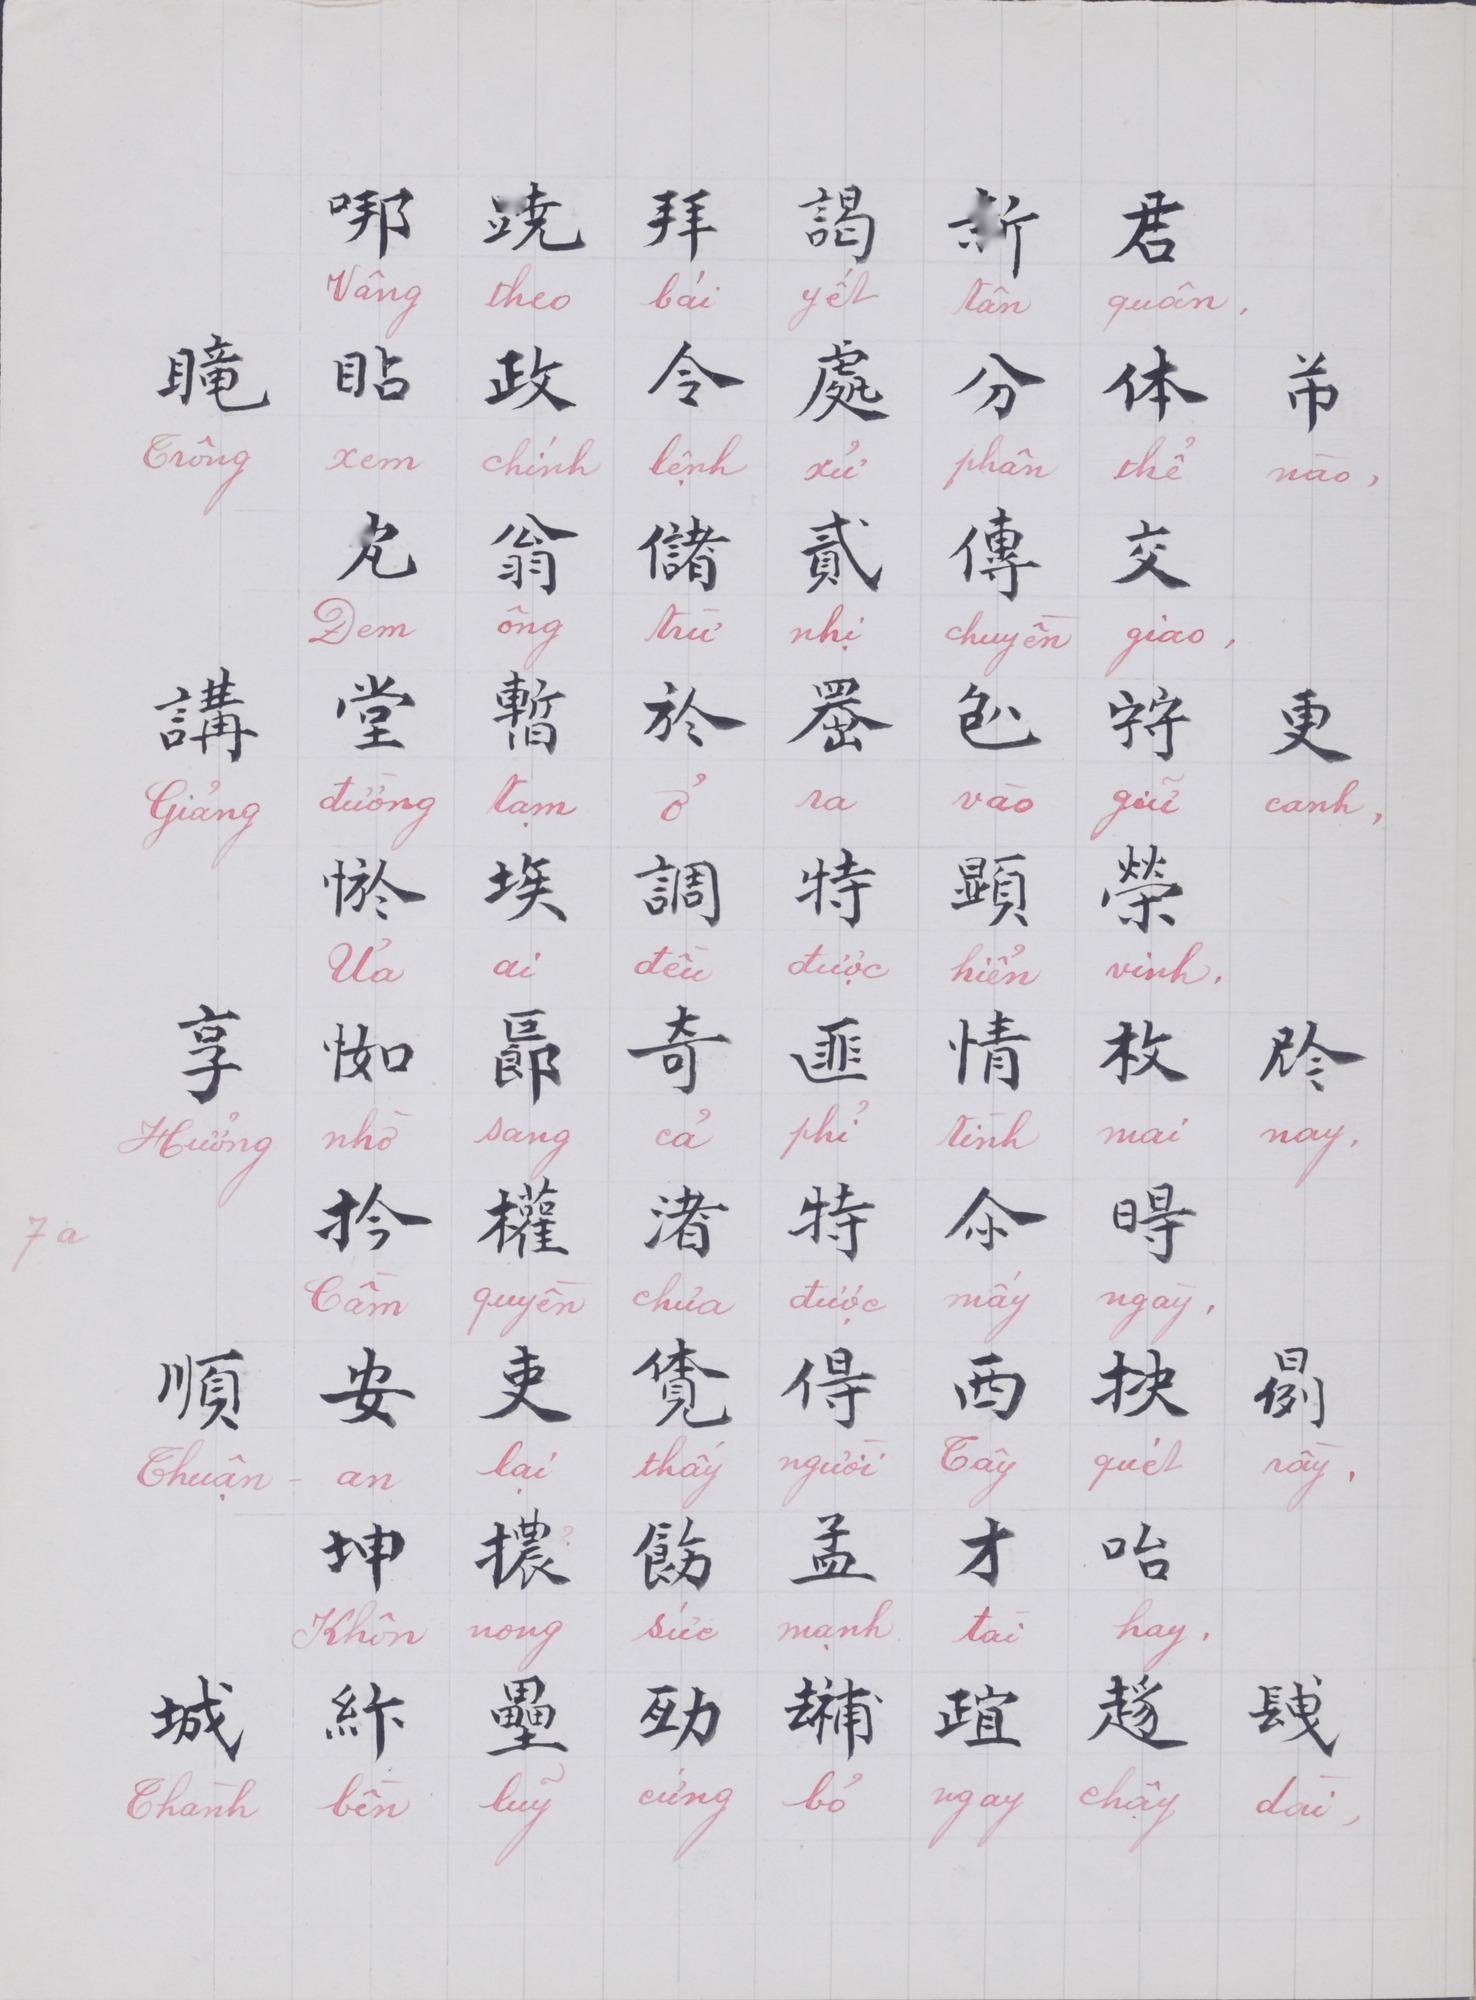 哪 𨀌 拜 謁 新 君
Vâng theo bái yết tân quân,
𥊣 𥄮 政 令 處 分 体 芇
Trông xem chính lệnh xử phân thể nào,
翁 儲 貳 傳 交
Đem ông trừ nhị chuyền giao,
講 堂 暫 於 𦋦 𠓨 𡨹 更
Giảng đường tạm ở ra vào giữ canh,
埃 調 特 顯 榮
Ủa ai đều được hiển vinh,
享 𢘾 郎 奇 匪 情 枚 𫢩
Hưởng nhờ sang cả phỉ tình mai nay,
扲 權 渚 特 𠇍 𣈜
Cầm quyền chửa được mấy ngày,
順 安 吏 𧡊 㝵 西 抉 𣋑
Thuận-an lại thấy người Tây quét rầy,
坤 擃 飭 孟 才 咍
Khôn nong sức mạnh tài hay,
城 紨 壘 勁 𠬕 𣦍 𧼋 𨱽
Thành bền luỹ cứng bỏ ngay chậy dài,
7a